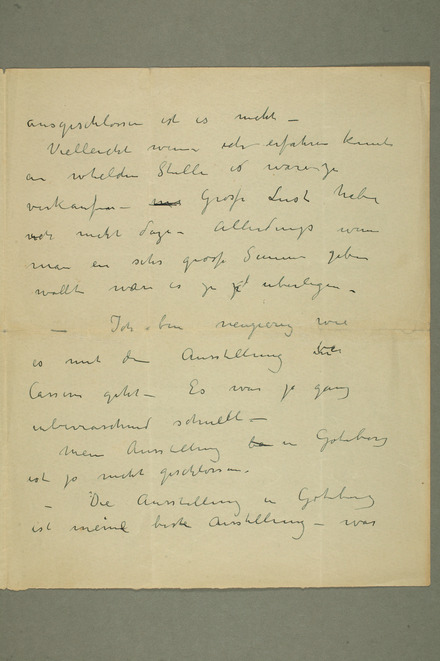 ausgeschlossen ist es nicht –
Vielleicht wenn ich erfahren konnte
an whelden Stelle es ware zu
verkaufen – Grosse Lust habe
ich nicht dazu – Allerdings wenn
man en sehr grosse Summe geben
wollt ware es ja zu uberlegen –
– Ich ben neugierig wie
es mit den Ausstellung bei
Cassirer geht – Es war ja ganz
uberraschend schnellt –
Mein Ausstellung in Goteborg
ist ja nicht geschlossen.
– Die Ausstellung in Goteborg
ist meine beste Ausstellung – was